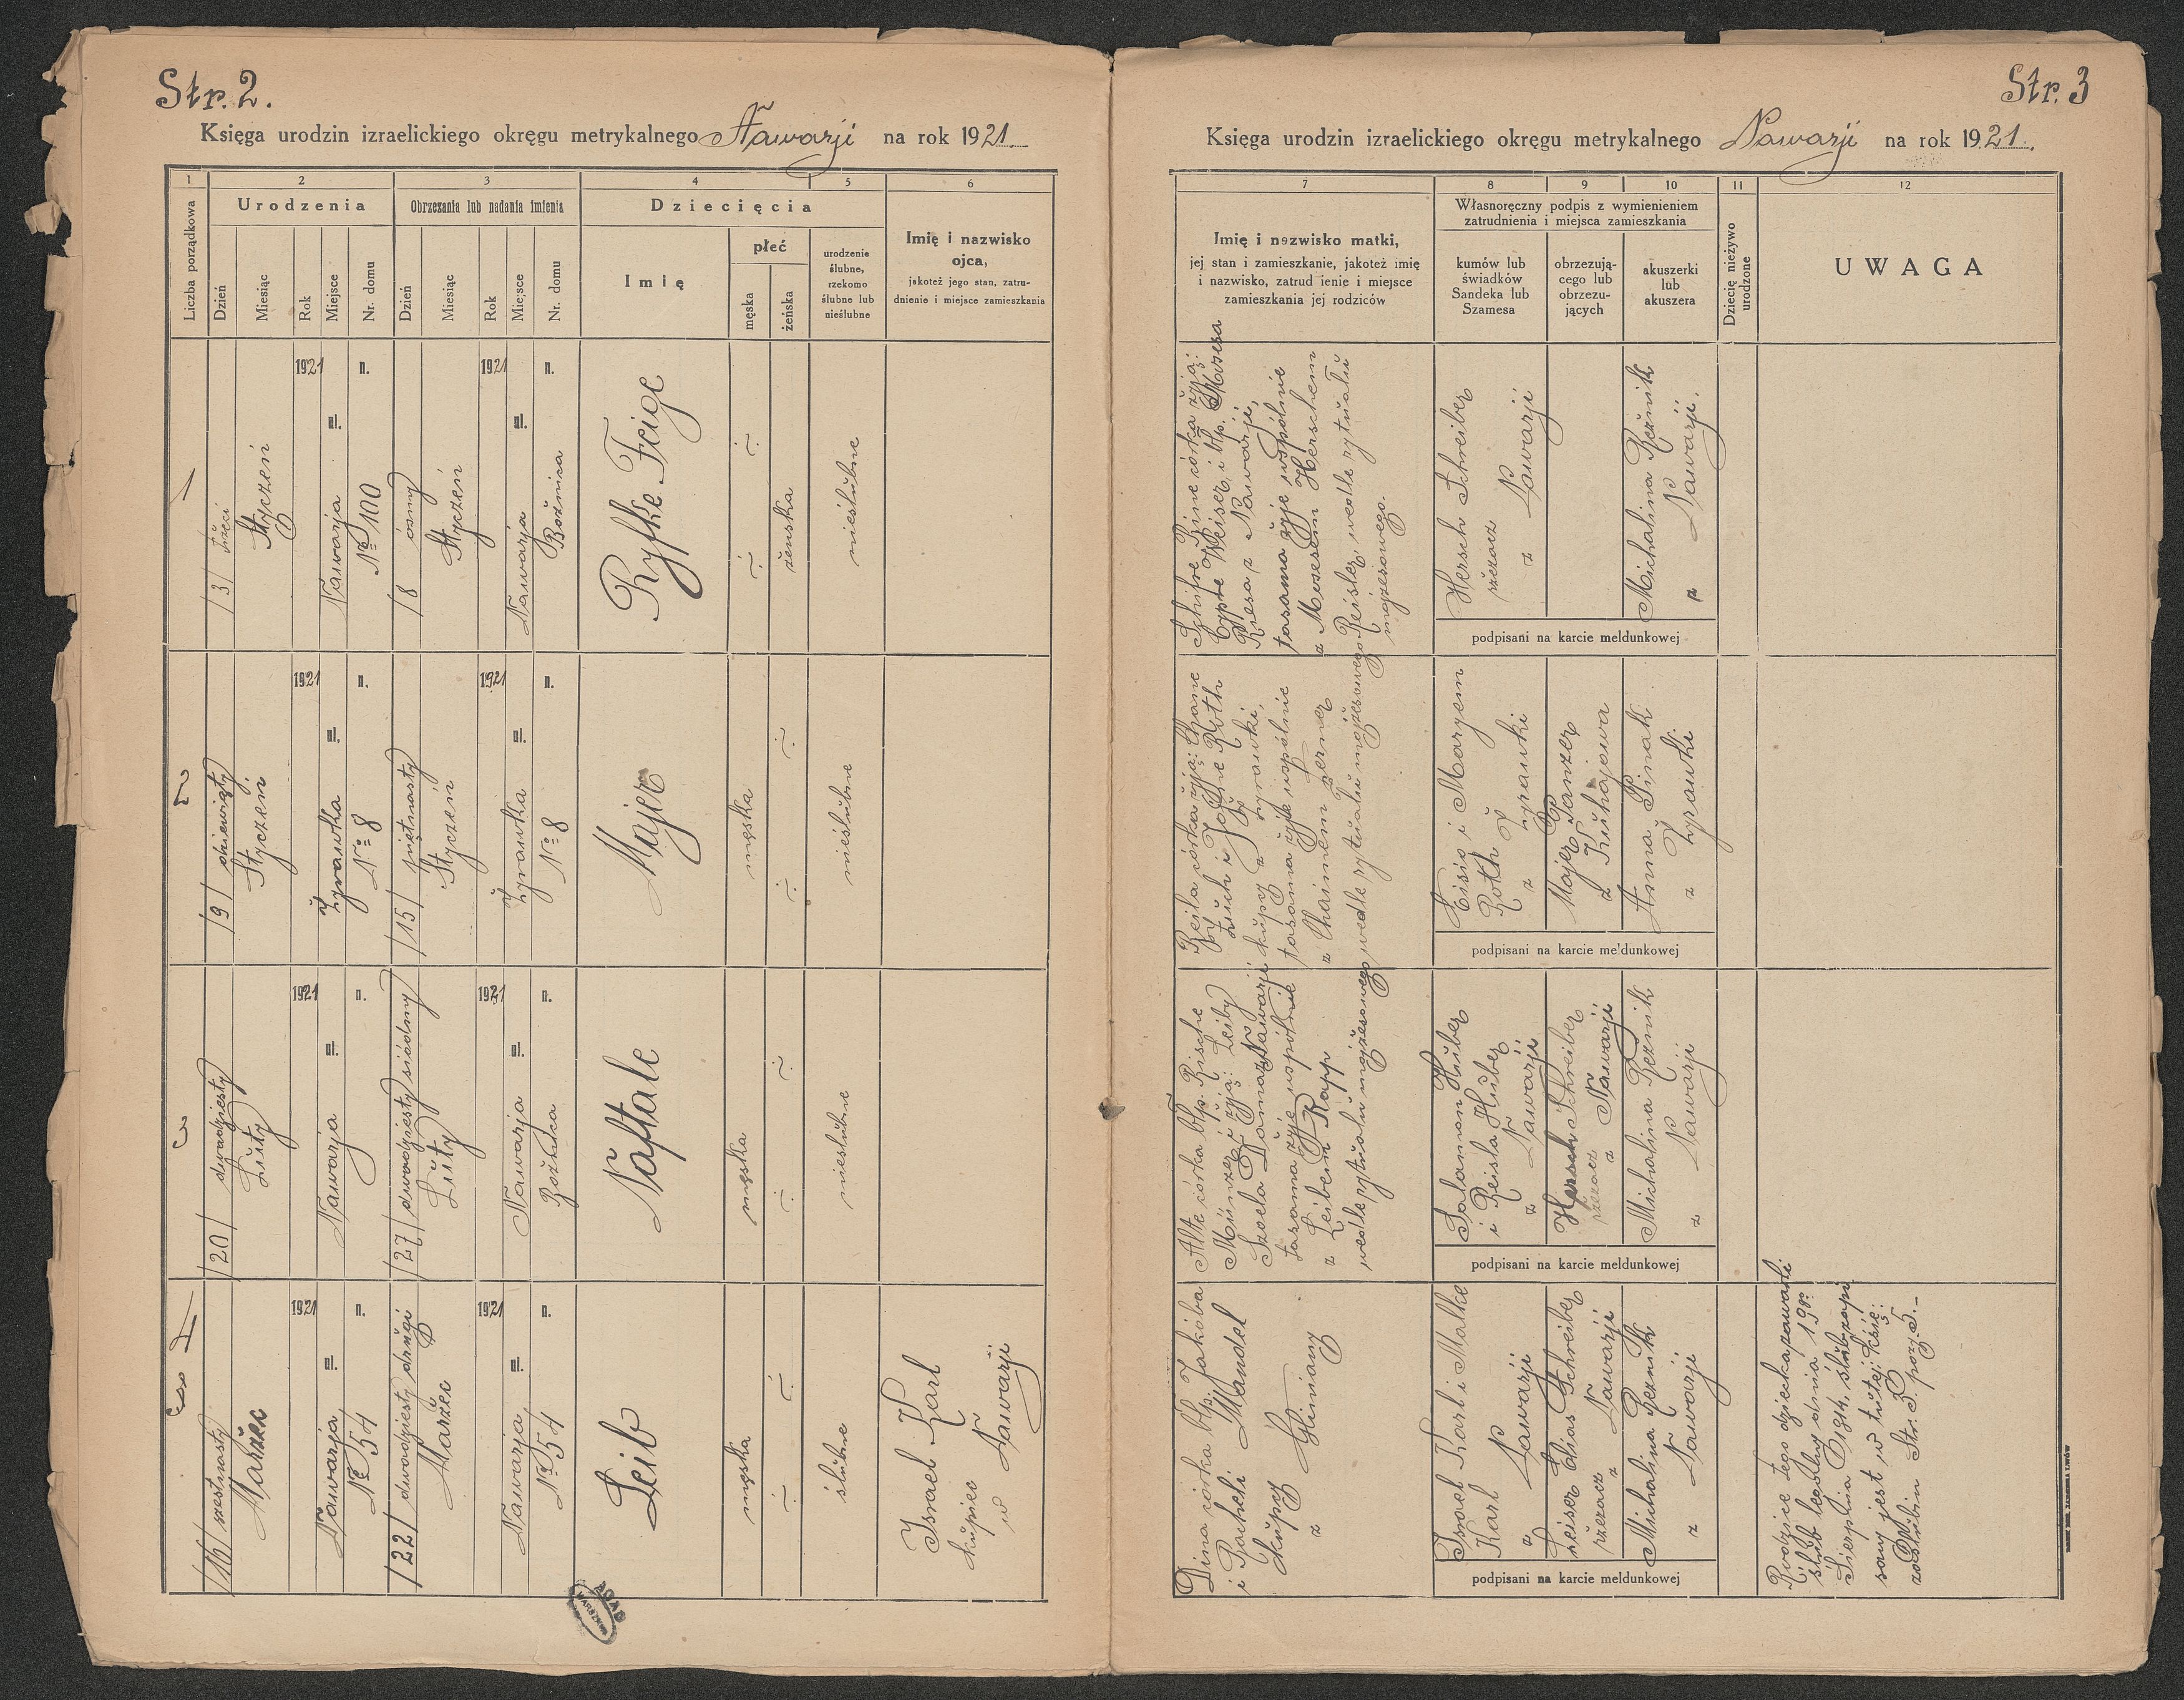 Str. 2.
Księga urodzin izraelickiego okręgu metrykalnego Nawarji na rok 1921.
1 2 3 4 5 6
Liczba porządkowa
Urodzenia
Obrzezania lub nadania imienia
Dziecięcia
Imię i nazwisko
ojca,
jakoteż jego stan, zatru-
dnienie i miejsce zamieszkania
Dzień Miesiąc Rok Miejsce Nr. domu
Dzień Miesiąc Rok Miejsce Nr. domu
Imię
płeć
męska żeńska
urodzenie
ślubne,
rzekomo
ślubne lub
nieślubne
1
/3/ trzeci
Styczeń
1921
Nawarja
№ 100
/8 ósmy
Styczeń
1921
Nawarja
Bóżnica
Ryfke Feige
żeńska
nieślubne
2
/9/ dziewiąty
Styczeń
1921
Żyrawka
№ 8
/15/ piętnasty
Styczeń
1921
Żyrawka
№ 8
Majer
męska
nieślubne
3
/20/ dwudziesty
Luty
1921
Nawarja
/27/ dwudziesty siódmy
Luty
1921
Nawarja
Naftale
męska
nieślubne
4
/16/ szestnasty
Marzec
1921
Nawarja
№ 54
/22/ dwudziesty drugi
Marzec
1921
Nawarja
№ 54
Leib
męska
ślubne
Israel Karl
kupiec
w Nawarji
Str. 3
Księga urodzin izraelickiego okręgu metrykalnego Nawarji na rok 1921.
7 8 9 10 11 12
Imię i nazwisko matki,
jej stan i zamieszkanie, jakoteż imię
i nazwisko, zatrud ienie i miejsce
zamieszkania jej rodziców
Własnoręczny podpis z wymienieniem
zatrudnienia i miejsca zamieszkania
kumów lub
świadków
Sandeka lub
Szamesa
obrzezują-
cego lub
obrzezu-
jących
akuszerki
lub
akuszera
Dziecię nieżywo
urodzone
UWAGA
córka żyją:
Weiser i błp. Mosesa
z Nawarji,
tasama żyje wspólnie
z Mosesem Herschem
Reisler wedle rytuału
mojżesowego.
Hersch Schreiber
rzezacz
z Nawarji
Michalina Reznik
z Nawarji.
podpisani na karcie meldunkowej
Beila córka żyją: Chane
i Roth
kupcy z Żyrawki,
tasama żyje wspólnie
z Chaimem Lerner
wedle rytuału mojżesowego
Eisig i Maryem
Roth
z Żyrawki
Majer Panzer
z Kuhajowa
Anna Pinak
z Żyrawki
podpisani na karcie meldunkowej
Alte córka błp. Rische
Münzer i żyją: Leiby
Nawarji
tasama żyje wspólnie
z Leibem Rapp
wedle rytuału mojżesowego
Salamon Huber
i Reisla Huber
z Nawarji
Hersch Schreiber
rzezacz
z Nawarji
Michalina Reznik
z Nawarji
podpisani na karcie meldunkowej
Dina córka błp. Jakóba
i Racheli Mandel
kupcy
z Gliniany
Israel Karl i Malke
Karl
z Nawarji
Leiser Elias Schreiber
rzezacz
z Nawarji
Michalina Reznik
z Nawarji
podpisani na karcie meldunkowej
Rodzice tego dziecka zawarli
ślub legalny dnia
Sierpnia 1914, ślub zapi
sany jest w tutej: księ:
zaślubin Str. 3. poz. 5.-
AGAD
WARSZAWA